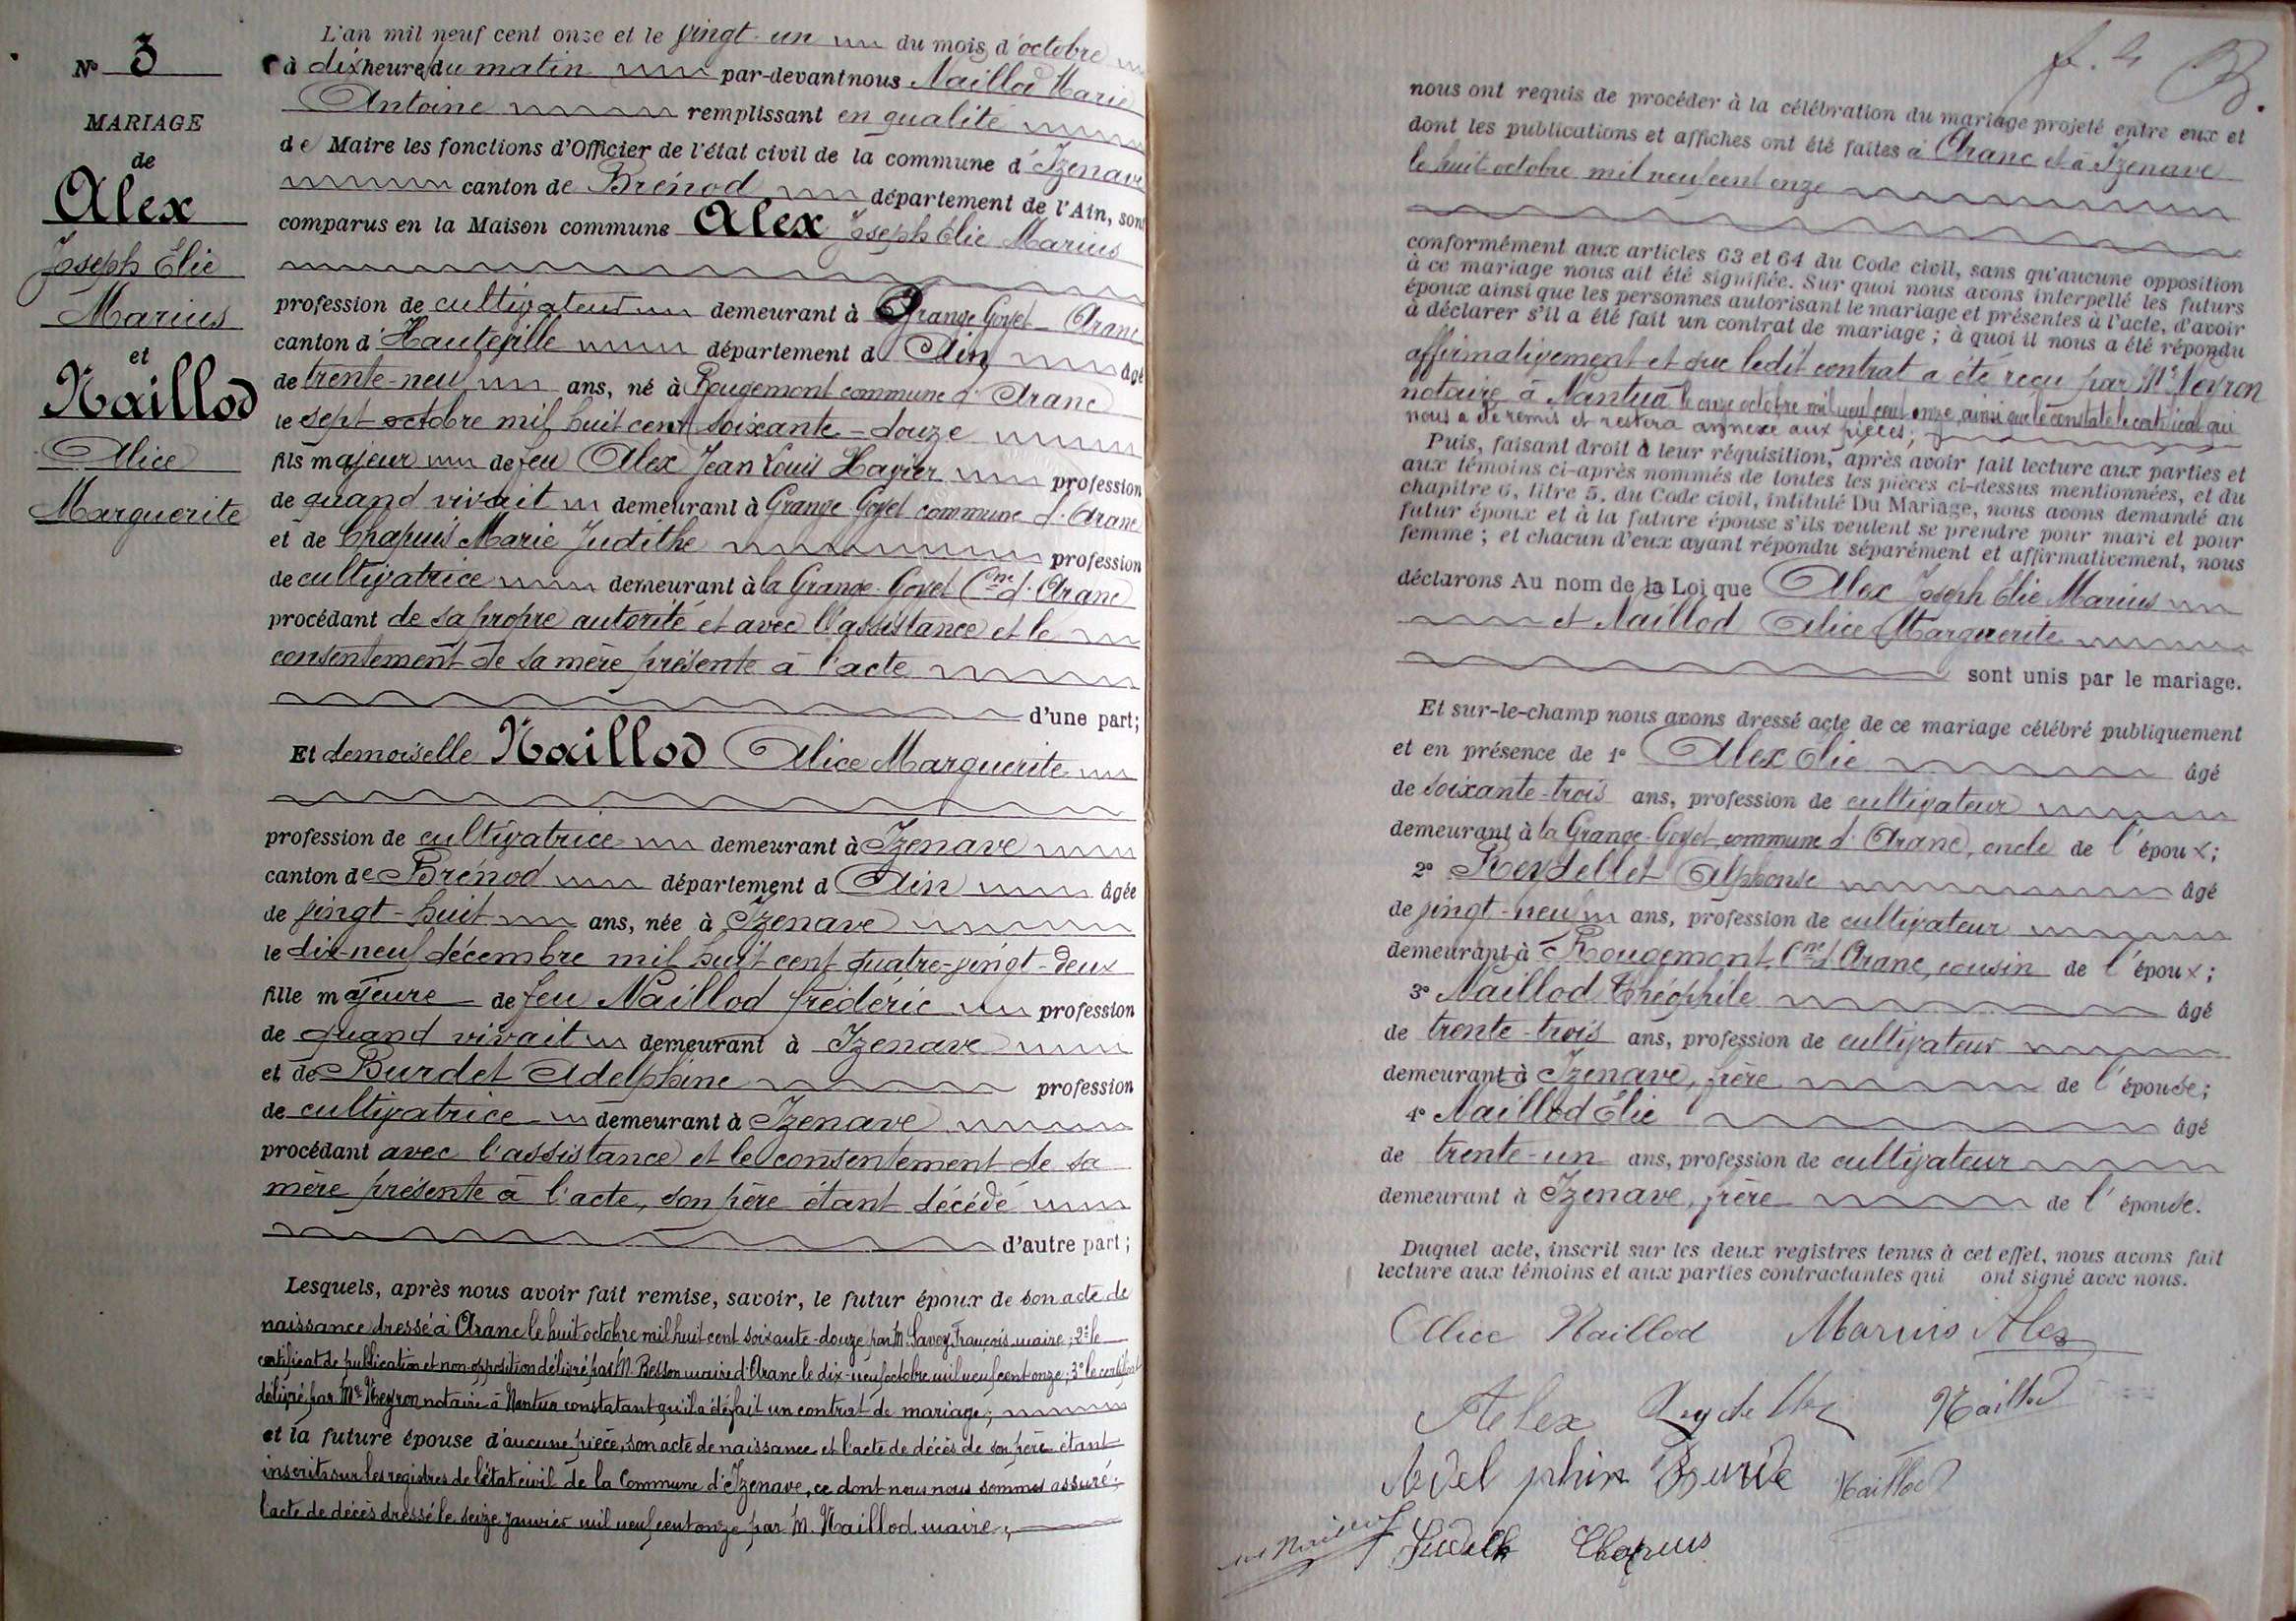 N° 3
MARIAGE
de
Alex
Joseph Élie
Marius
et
Naillod
Alice
Marguerite
L'an mil neuf cent onze et le vingt-un du mois d'octobre
à dix heures du matin par-devant nous Naillod Marie
Antoine remplissant en qualité
de Maire les fonctions d'Officier de l'état civil de la commune d'Izenave
canton de Brénod département de l'Ain, sont
comparus en la Maison commune Alex Joseph Élie Marius
profession de cultivateur demeurant à Grange Goyet - Aranc
canton d'Hauteville département d Ain âgé
de trente-neuf ans, né à Rougemont commune d'Aranc
le sept octobre mil huit cent soixante-douze
fils majeur de feu Alex Jean Louis Xavier profession
de quand vivait demeurant à Grange-Goyet commune d'Aranc
et de Chapuis Marie Judithe profession
de cultivatrice demeurant à la Grange-Goyet Cne d'Aranc
procédant de sa propre autorité et avec l'assistance et le
consentement de sa mère présente à l'acte
d'une part;
Et demoiselle Naillod Alice Marguerite
profession de cultivatrice demeurant à Izenave
canton de Brénod département d Ain âgée
de vingt-huit ans, née à Izenave
le dix-neuf décembre mil huit cent quatre-vingt-deux
fille majeure de feu Naillod frédéric profession
de quand vivait demeurant à Izenave
et de Burdet Adelphine profession
de cultivatrice demeurant à Izenave
procédant avec l'assistance et le consentement de sa
mère présente à l'acte, son père étant décédé
d'autre part;
Lesquels, après nous avoir fait remise, savoir, le futur époux de son acte de
naissance dressé à Aranc le huit octobre mil huit cent soixante-douze par M. Savey François, maire; 2° le
certificat de publication et non-opposition délivré par M. Besson maire d'Aranc le dix-neuf octobre mil neuf cent onze; 3° le certificat
délivré par Me Neyron notaire à Nantua constatant qu'il a été fait un contrat de mariage;
et la future épouse d'aucune pièce, son acte de naissance et l'acte de décès de son père étant
inscrits sur les registres de l'état civil de la Commune d'Izenave, ce dont nous nous sommes assuré;
l'acte de décès dressé le seize janvier mil neuf cent onze par M. Naillod maire;
f. 4
nous ont requis de procéder à la célébration du mariage projeté entre eux et
dont les publications et affiches ont été faites à Aranc et à Izenave
le huit octobre mil neuf cent onze
conformément aux articles 63 et 64 du Code civil, sans qu'aucune opposition
à ce mariage nous ait été signifiée. Sur quoi nous avons interpellé les futurs
époux ainsi que les personnes autorisant le mariage et présentes à l'acte, d'avoir
à déclarer s'il a été fait un contrat de mariage; à quoi il nous a été répondu
affirmativement et que ledit contrat a été reçu par Me Neyron
notaire à Nantua le onze octobre mil neuf cent onze, ainsi que le constate le certificat qui
nous a été remis et restera annexé aux pièces;
Puis, faisant droit à leur réquisition, après avoir fait lecture aux parties et
aux témoins ci-après nommés de toutes les pièces ci-dessus mentionnées, et du
chapitre 6, titre 5, du Code civil, intitulé Du Mariage, nous avons demandé au
futur époux et à la future épouse s'ils veulent se prendre pour mari et pour
femme; et chacun d'eux ayant répondu séparément et affirmativement, nous
déclarons Au nom de la Loi que Alex Joseph Élie Marius
et Naillod Alice Marguerite
sont unis par le mariage.
Et sur-le-champ nous avons dressé acte de ce mariage célébré publiquement
et en présence de 1° Alex Élie âgé
de soixante-trois ans, profession de cultivateur
demeurant à la Grange-Goyet commune d'Aranc, oncle de l'époux;
2° Reydellet Alphonse âgé
de vingt-neuf ans, profession de cultivateur
demeurant à Rougemont, Cne d'Aranc, cousin de l'époux;
3° Naillod Théophile âgé
de trente-trois ans, profession de cultivateur
demeurant à Izenave, frère de l'épouse;
4° Naillod Élie âgé
de trente-un ans, profession de cultivateur
demeurant à Izenave, frère de l'épouse.
Duquel acte, inscrit sur les deux registres tenus à cet effet, nous avons fait
lecture aux témoins et aux parties contractantes qui ont signé avec nous.
Alice Naillod Marius Alex
Alex Naillod
Adelphin Burde Naillod
Naillod Judith Chapuis